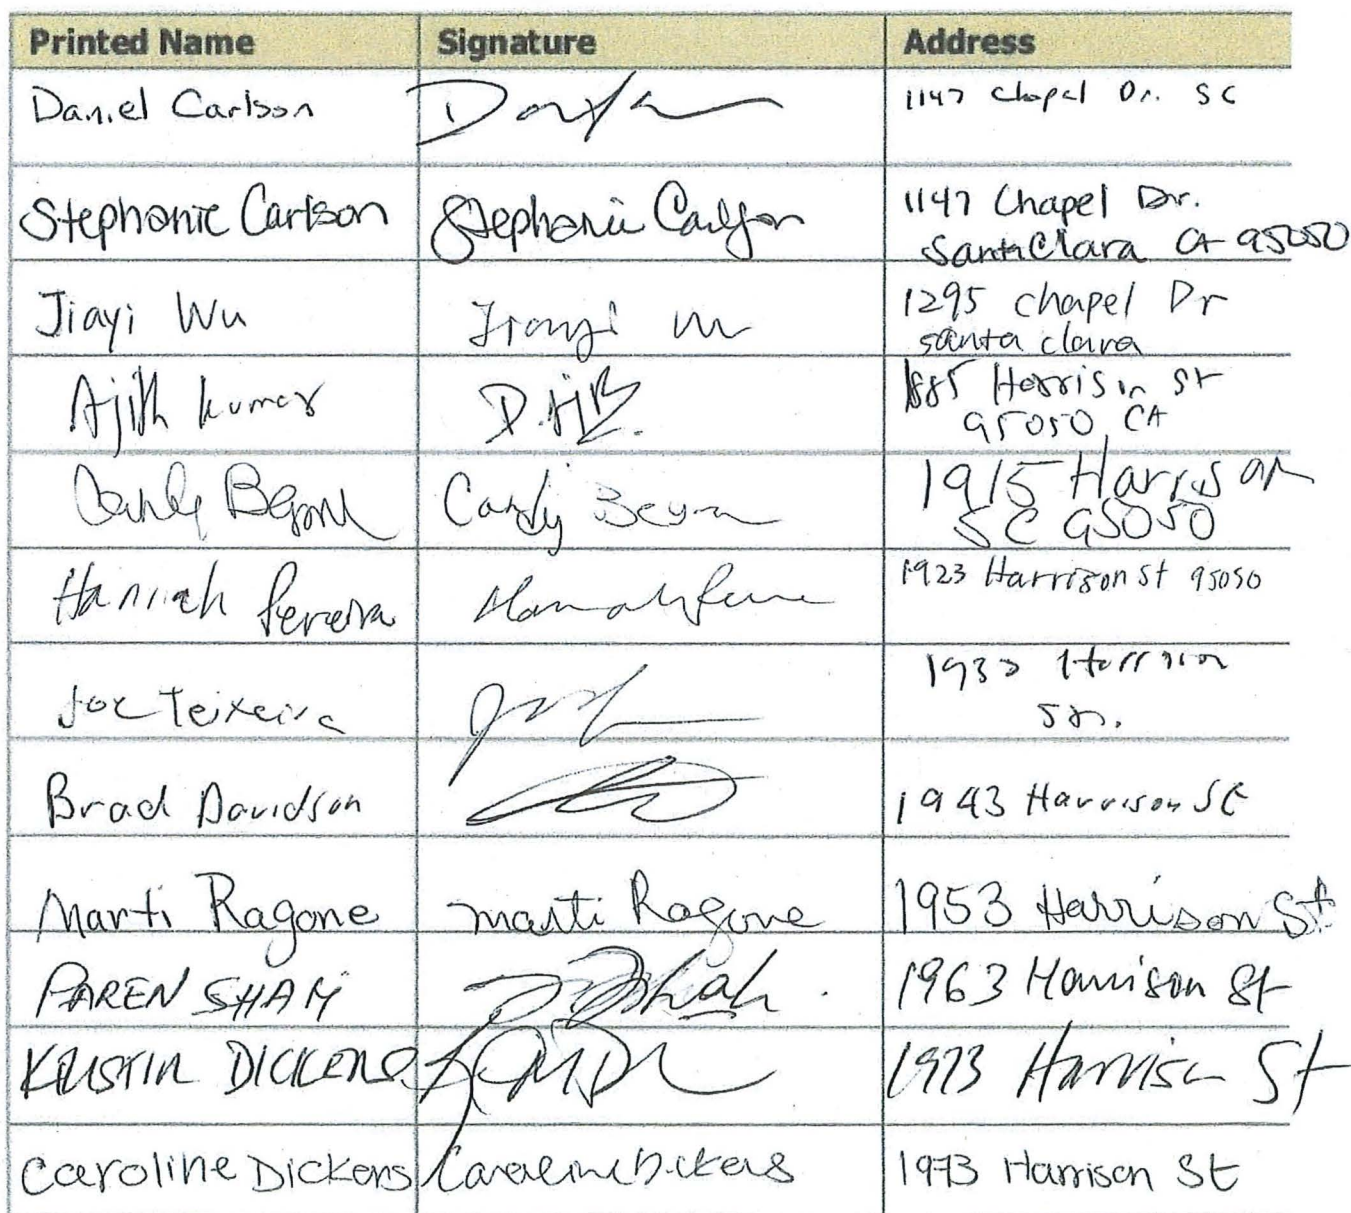 Printed Name Signature Address
Daniel Carlson 1147 Chapel Dr. SC
Stephanie Carlson Stephanie Carlson 1147 Chapel Dr.
Santa Clara CA 95050
Jiayi Wu Jiayi Wu 1295 chapel Dr
santa clara
Ajith kumar 1885 Harrison St
95050 CA
Candy 1915 Harrison
SC 95050
Hannah Pereira Hannah 1923 Harrison St 95050
Joe Teixeira Harrison
St.
Brad Davidson 1943 Harrison St
Marti Ragone Marti Ragone 1953 Harrison St
PAREN SHAH Shah 1963 Harrison St
KRISTIN DICKENS 1973 Harrison St
Caroline Dickens Caroline Dickens 1973 Harrison St